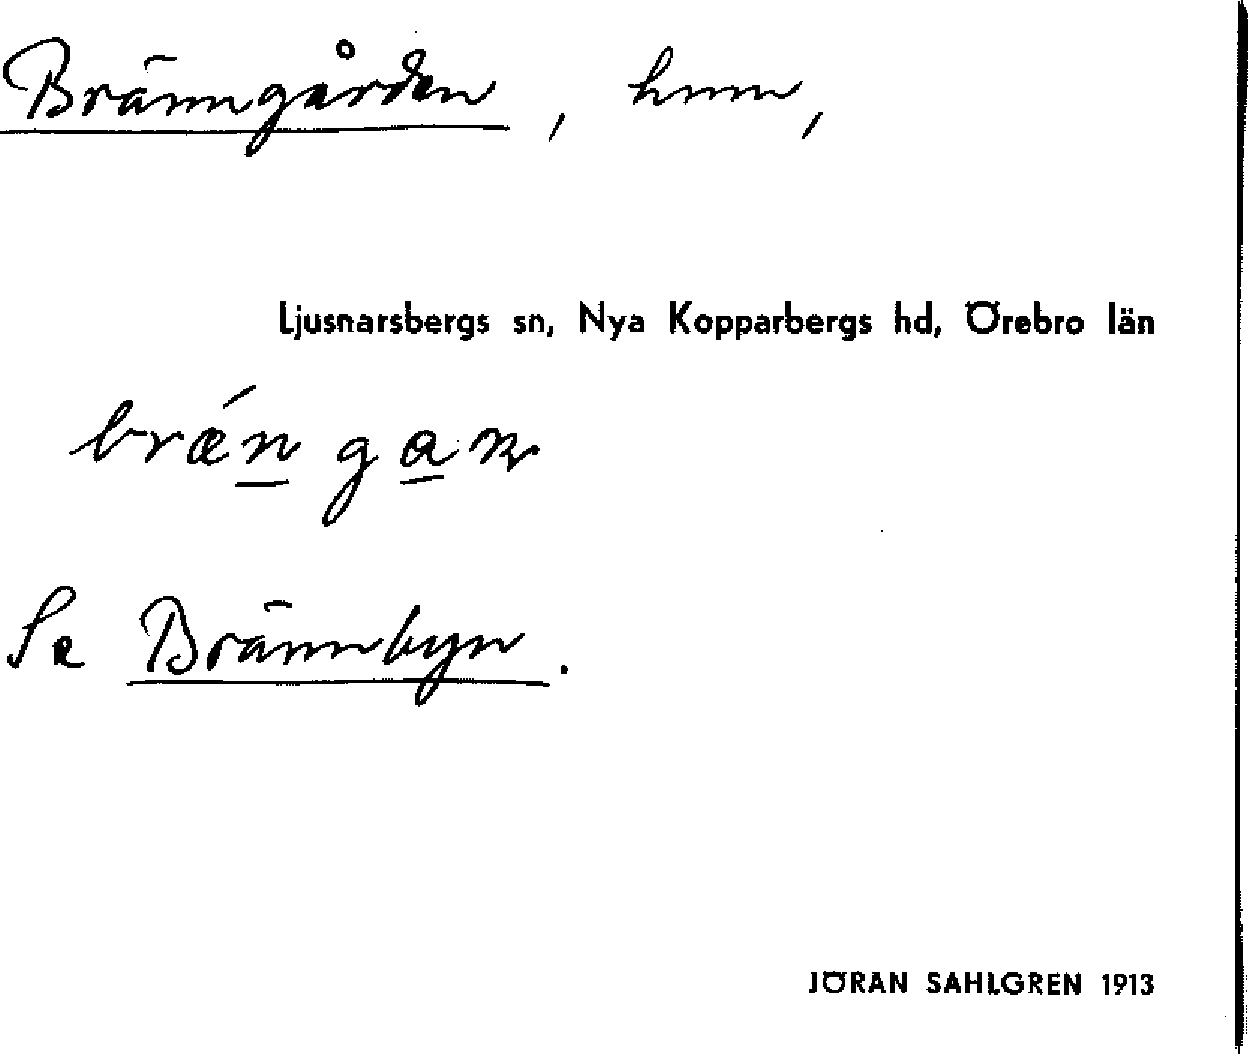 Bränngården, hmn,
Ljusnarsbergs sn, Nya Kopparbergs hd, Örebro län
Se Brännbyn.
JÖRAN SAHLGREN 1913